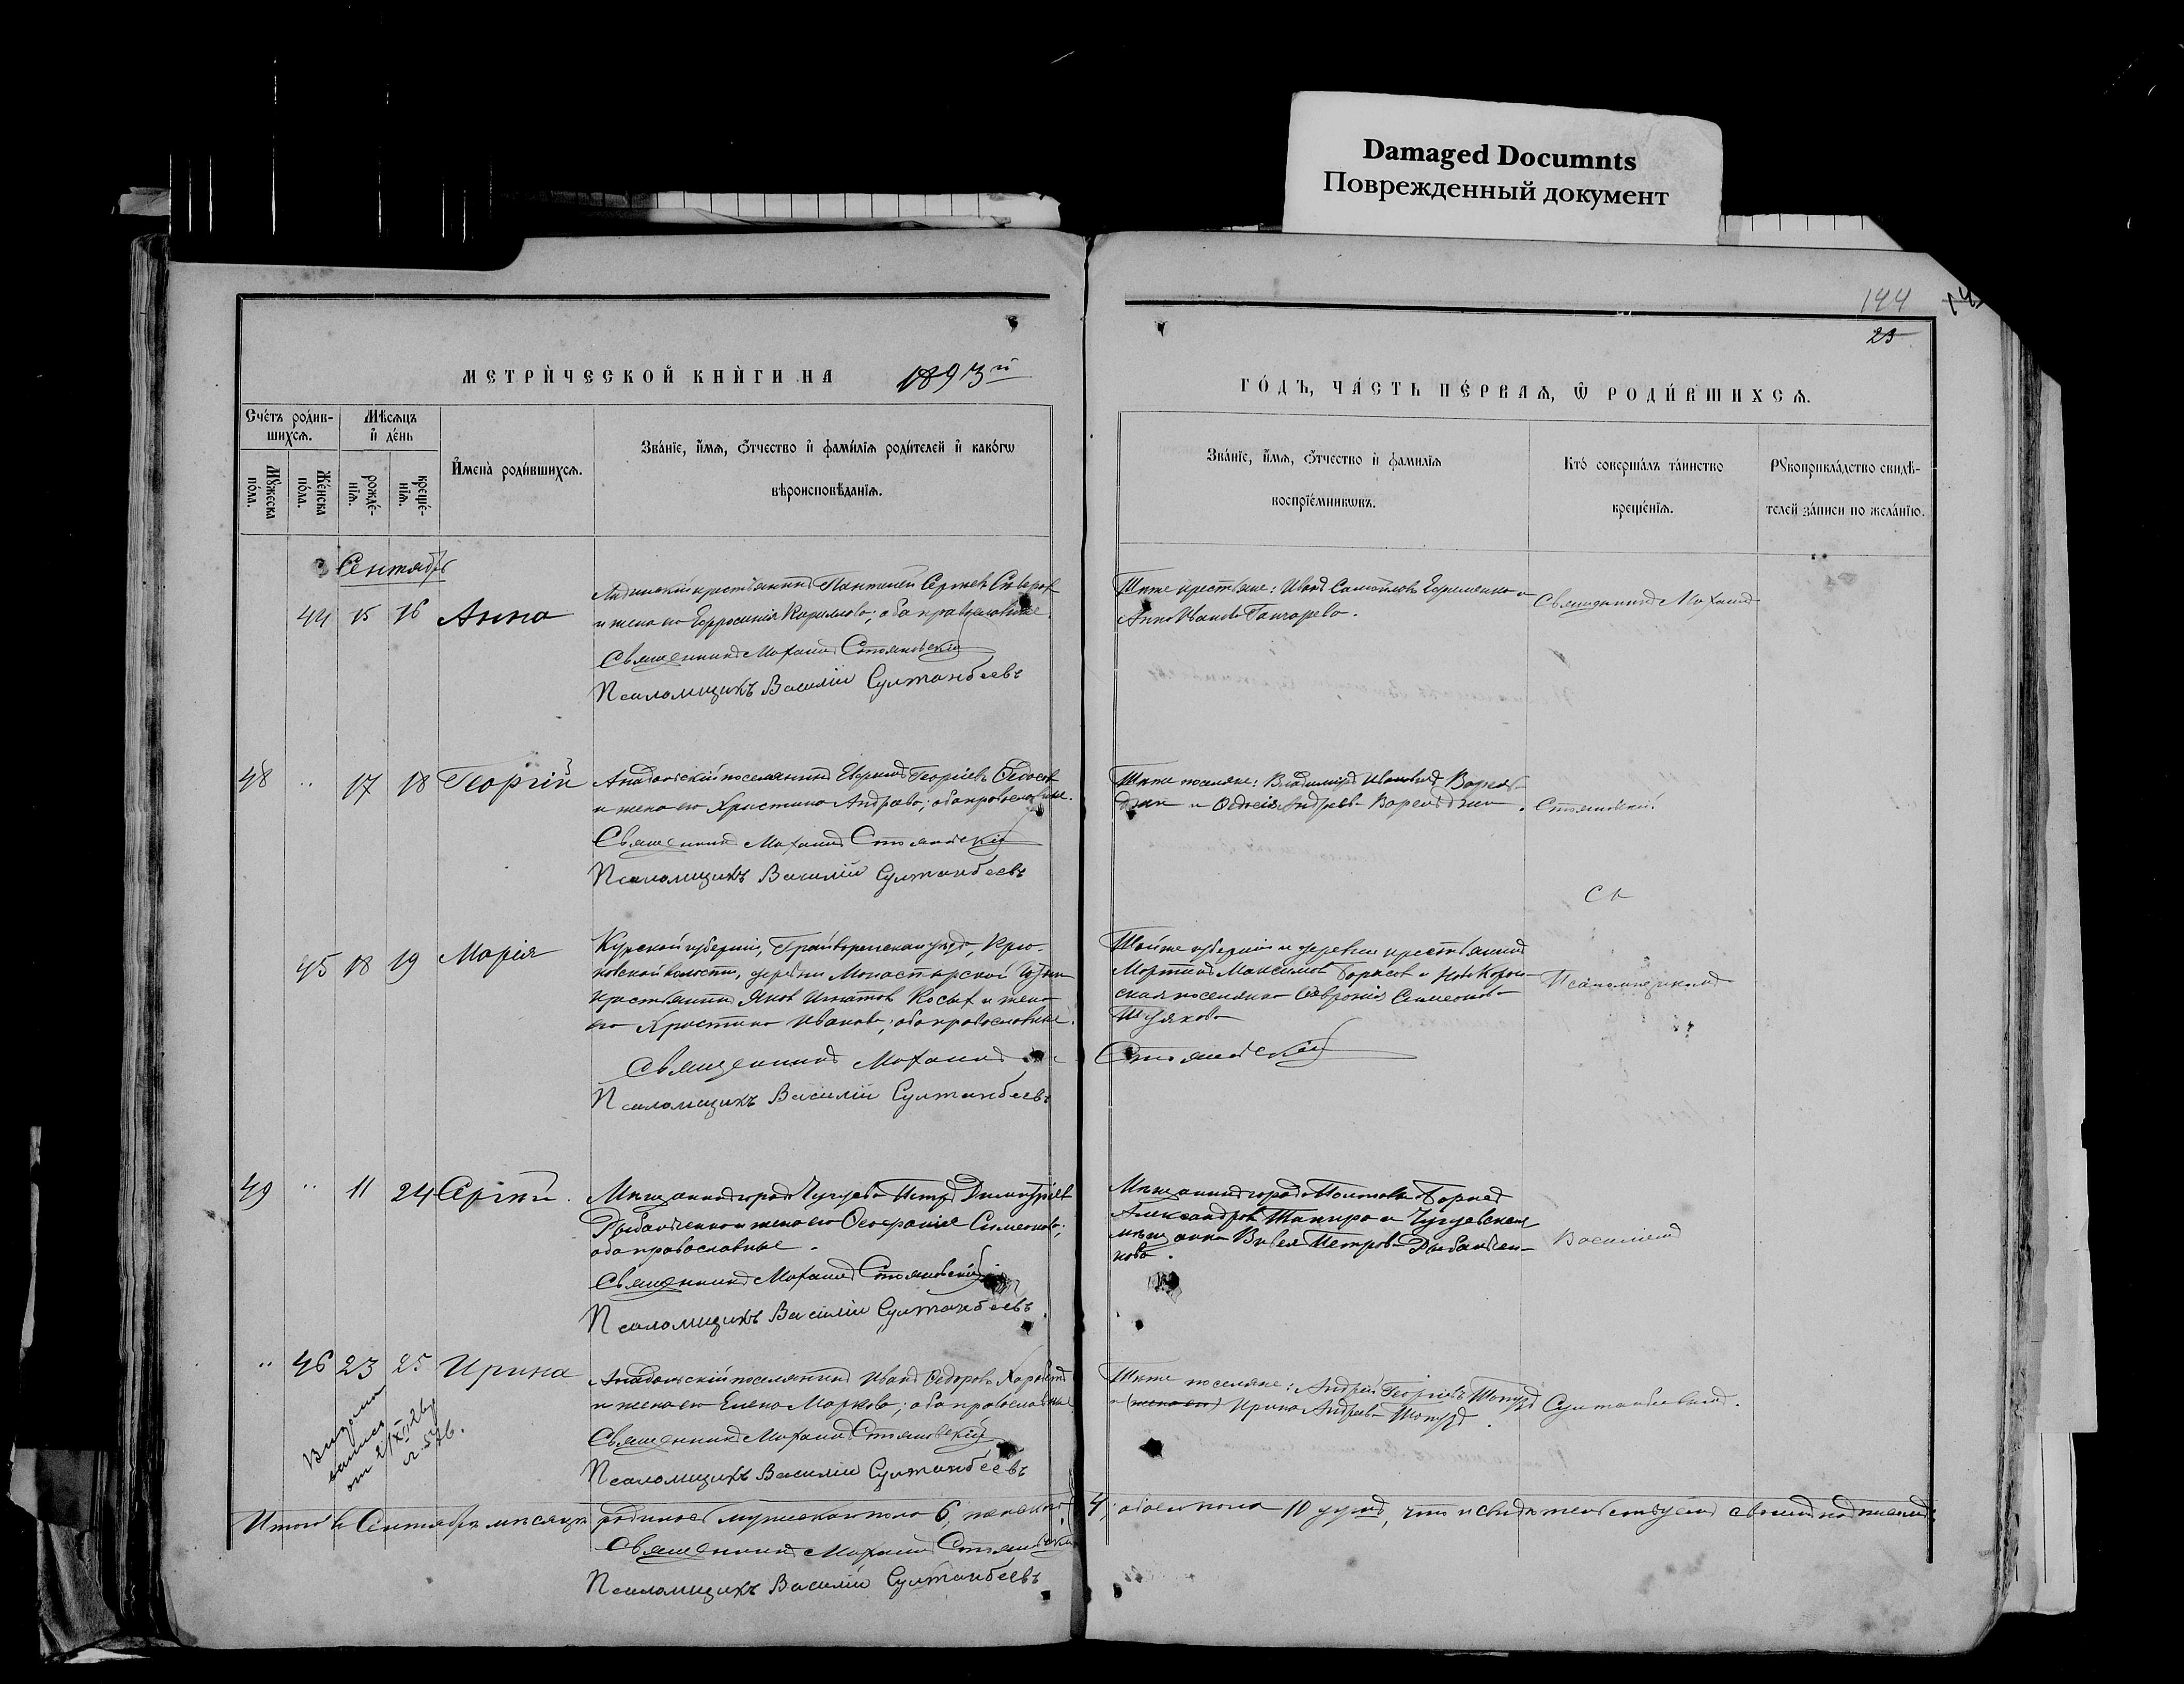 Damaged Documnts
Поврежденный документ
144
23
МЕТРИ́ЧЕСКОЙ КНИ́ГИ НА 1893й
ГО́ДЪ, ЧА́СТЬ ПЕ́РВАѦ, Ѿ РОДИ́ВШИХСѦ.
Сче́тъ роди́в-
шихсѧ.
Мꙋ́жеска
по́ла.
Же́нска
по́ла.
Мѣ́сѧцъ
и҆ де́нь
рожде́-
нїѧ.
креще́-
нїѧ.
И҆мена̀ роди́вшихсѧ.
Зва́нїе, и҆́мѧ, ѻ҆́тчество и҆ фамил́їѧ роди́телей и҆ како́гѡ
вѣроисповѣ́данїѧ.
Зва́нїе, и҆́мѧ, ѻ҆́тчество и҆ фамилїѧ
воспрїе́мникѡвъ.
Кто̀ соверша́лъ та́инство
креще́нїѧ.
Рꙋкоприкла́дство свидѣ́-
телей за́писи по жела́нїю.
Сентябрь
44 15 16 Анна
крестьянинъ Пантелей Сергѣевъ
и жена его Евфросинія Кириллова; оба православные.
Священникъ Михаилъ Стояновскій
Псаломщикъ Василій Султанбеевъ
Тѣже крестьяне: Иванъ Самойловъ Ефременко и
Анна Иванова Гончарева.
Священникъ Михаилъ
48 " 17 18 Георгій
Анадольскій поселянинъ Георгіевъ
и жена его Христина Андреева; оба православные.
Священникъ Михаилъ Стояновскій
Псаломщикъ Василій Султанбеевъ
Тѣже поселяне: Владиміръ Ивановъ
и Ѳедосія Андреева
Стояновскій.
Св
45 18 19 Марія
Курской губерніи, Грайворонскаго уѣзда, Крю-
ковской волости, деревни Монастырской
крестьянинъ Яковъ Игнатовъ Косыхъ и жена
его Христина Иванова; оба православные.
Священникъ Михаилъ
Псаломщикъ Василій Султанбеевъ
Тойже губерніи и деревни крестьянинъ
Мартинъ Максимовъ Борисовъ и
ская поселянка Февронія Симеонова
Стояновскій
Псаломщикомъ
49 " 11 24 Сергій.
Мѣщанинъ города Чугуева Петръ Димитріевъ
Рыбальченко и жена его Симеонова;
оба православные.
Священникъ Михаилъ Стояновскій
Псаломщикъ Василій Султанбеевъ.
Мѣщанинъ города Полтавы Борисъ
Александровъ Шапиро и Чугуевская
мѣщанка Петрова Рыбальчен-
кова.
Василіемъ
" 46 23 25 Ирина
Анадольскій поселянинъ Иванъ Ѳедоровъ
и жена его Елена Маркова; оба православные.
Священникъ Михаилъ Стояновскій
Псаломщикъ Василій Султанбеевъ
Тѣже поселяне: Андрей Георгіевъ
и (жена его) Ирина Андреева
Султанбеевымъ.
от 2/XI 26
Итого въ Сентябрѣ мѣсяцѣ родилось мужескаго пола 6, женскаго 4, обоего пола 10 душъ, что и свидѣтельствуемъ своимъ подписомъ:
Священникъ Михаилъ Стояновскій
Псаломщикъ Василій Султанбеевъ